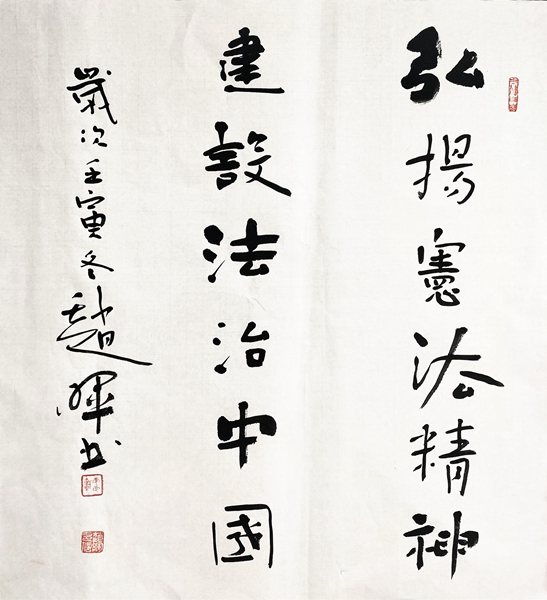 弘揚憲法精神
建設法治中國
歲次壬寅冬趙暉书